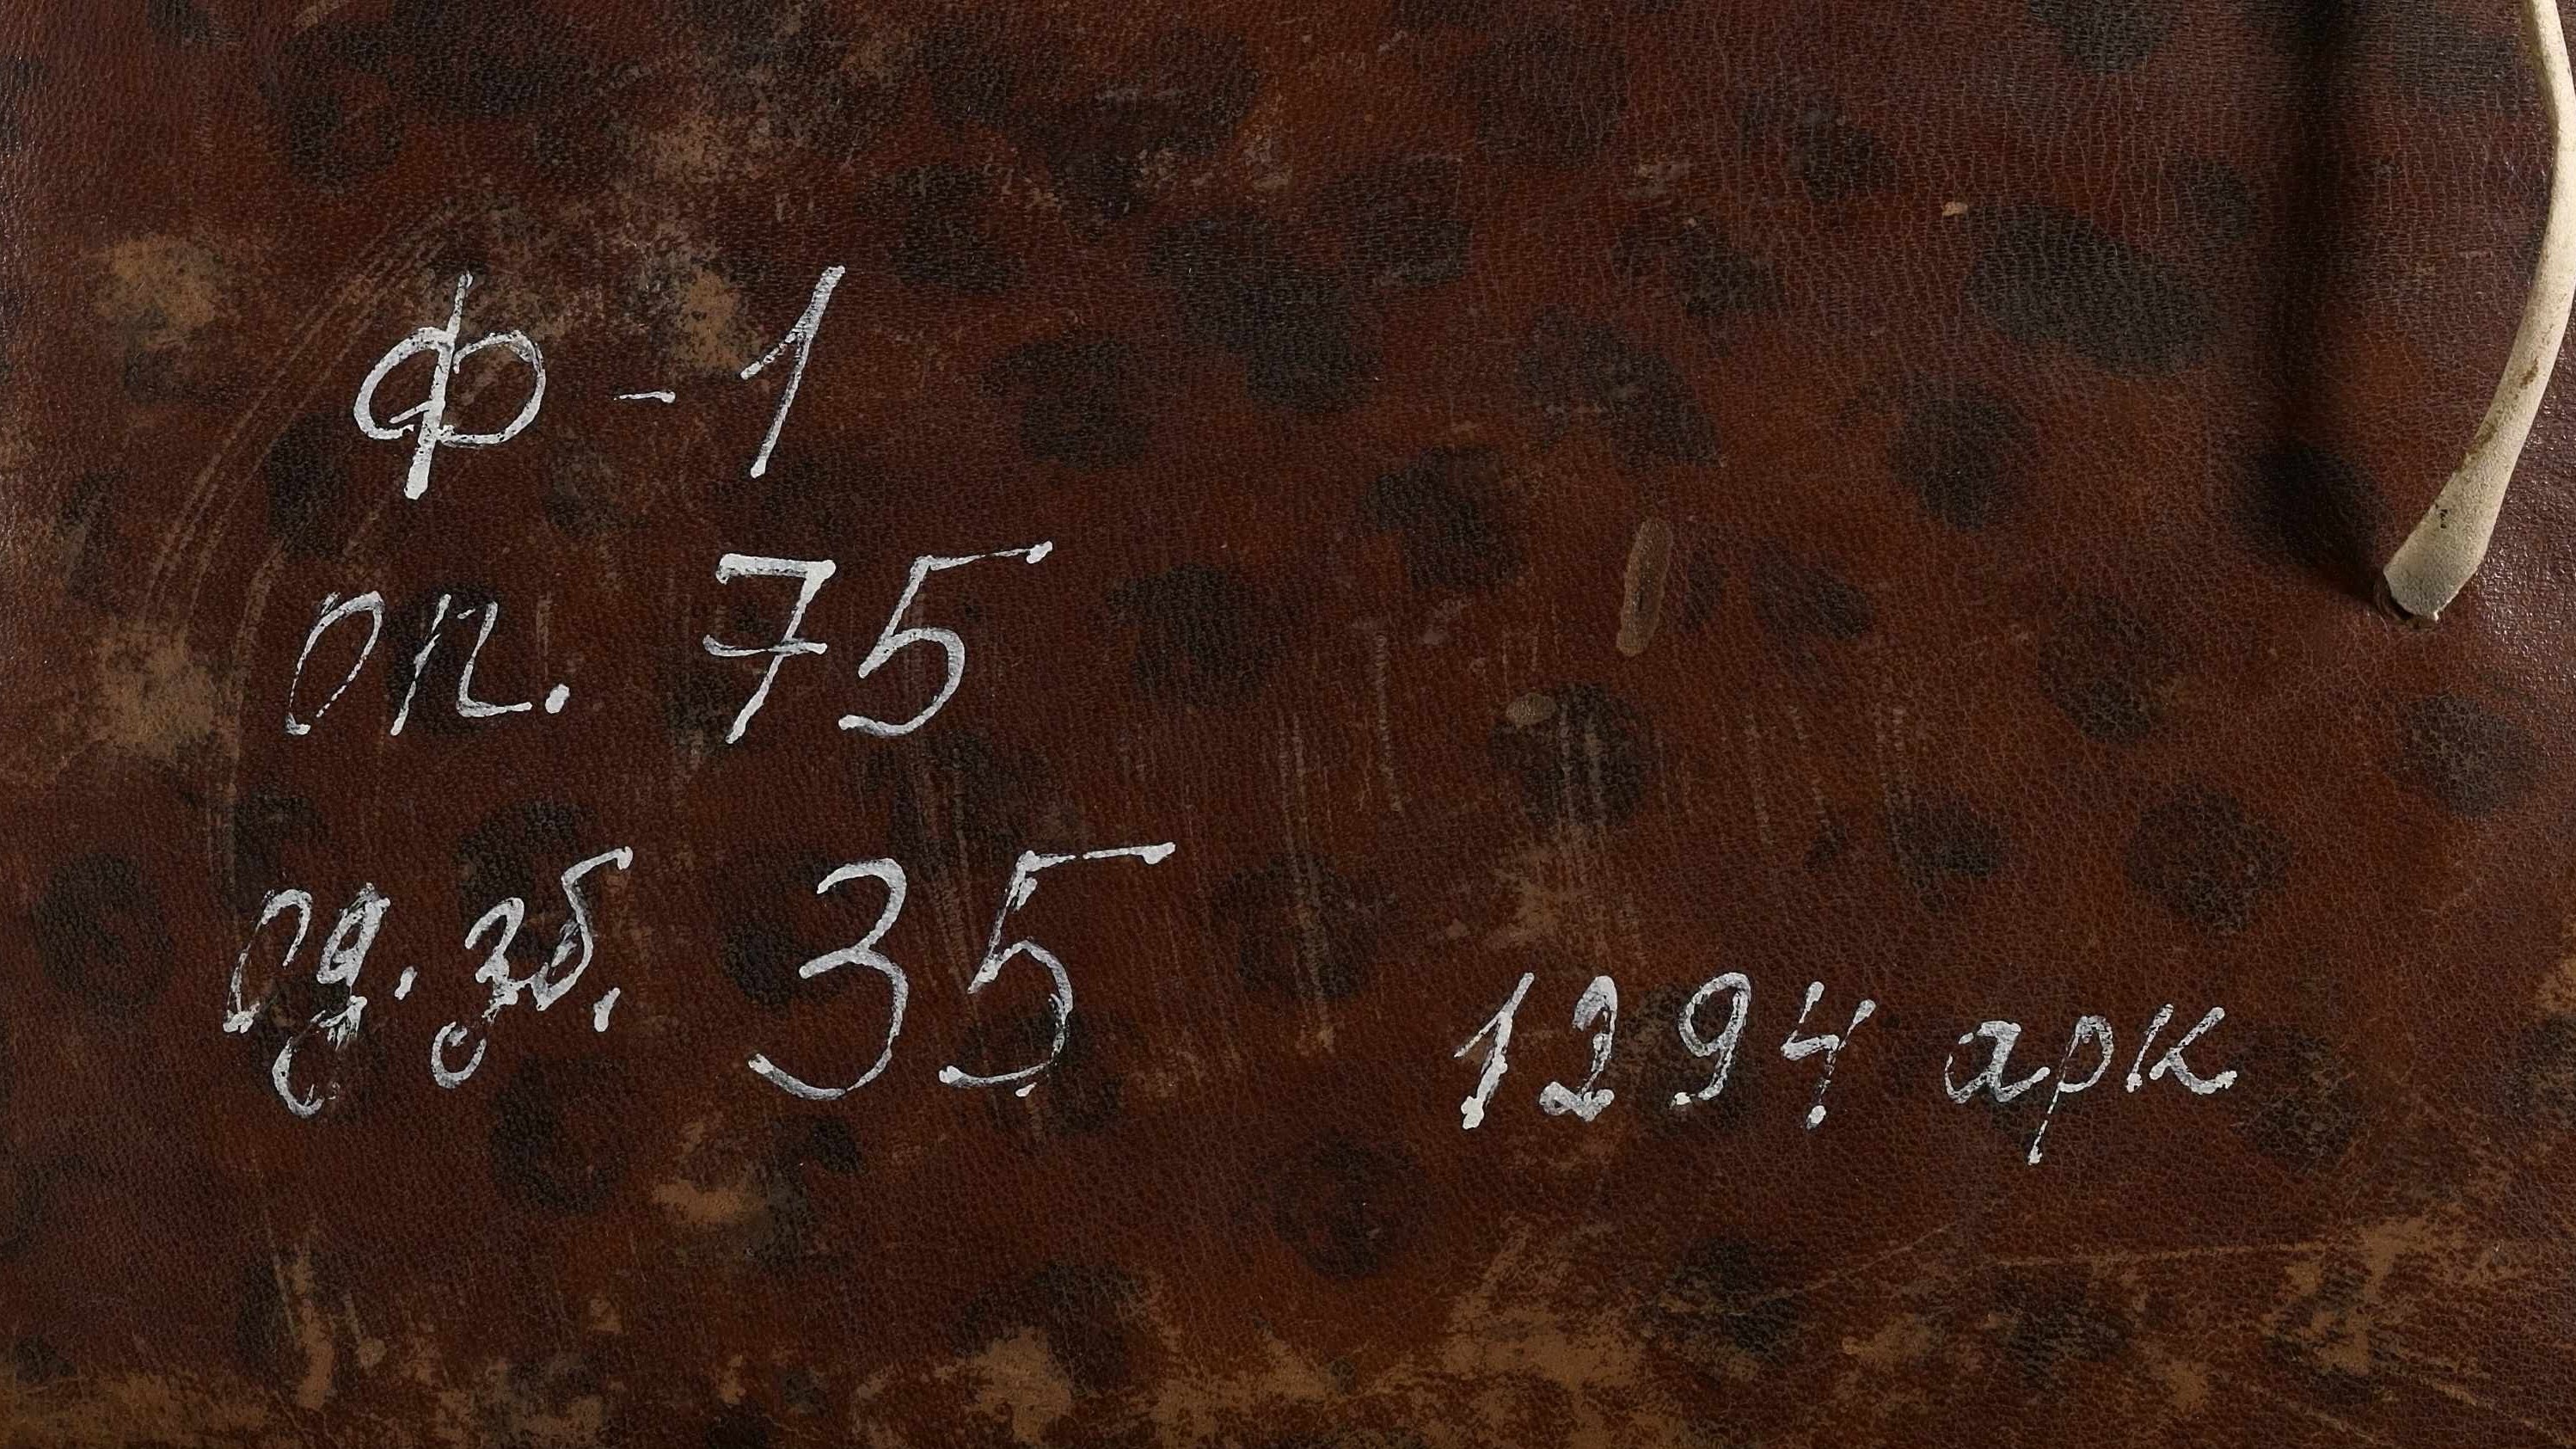 ф - 1
оп. 75
од. зб. 35
1294 арк